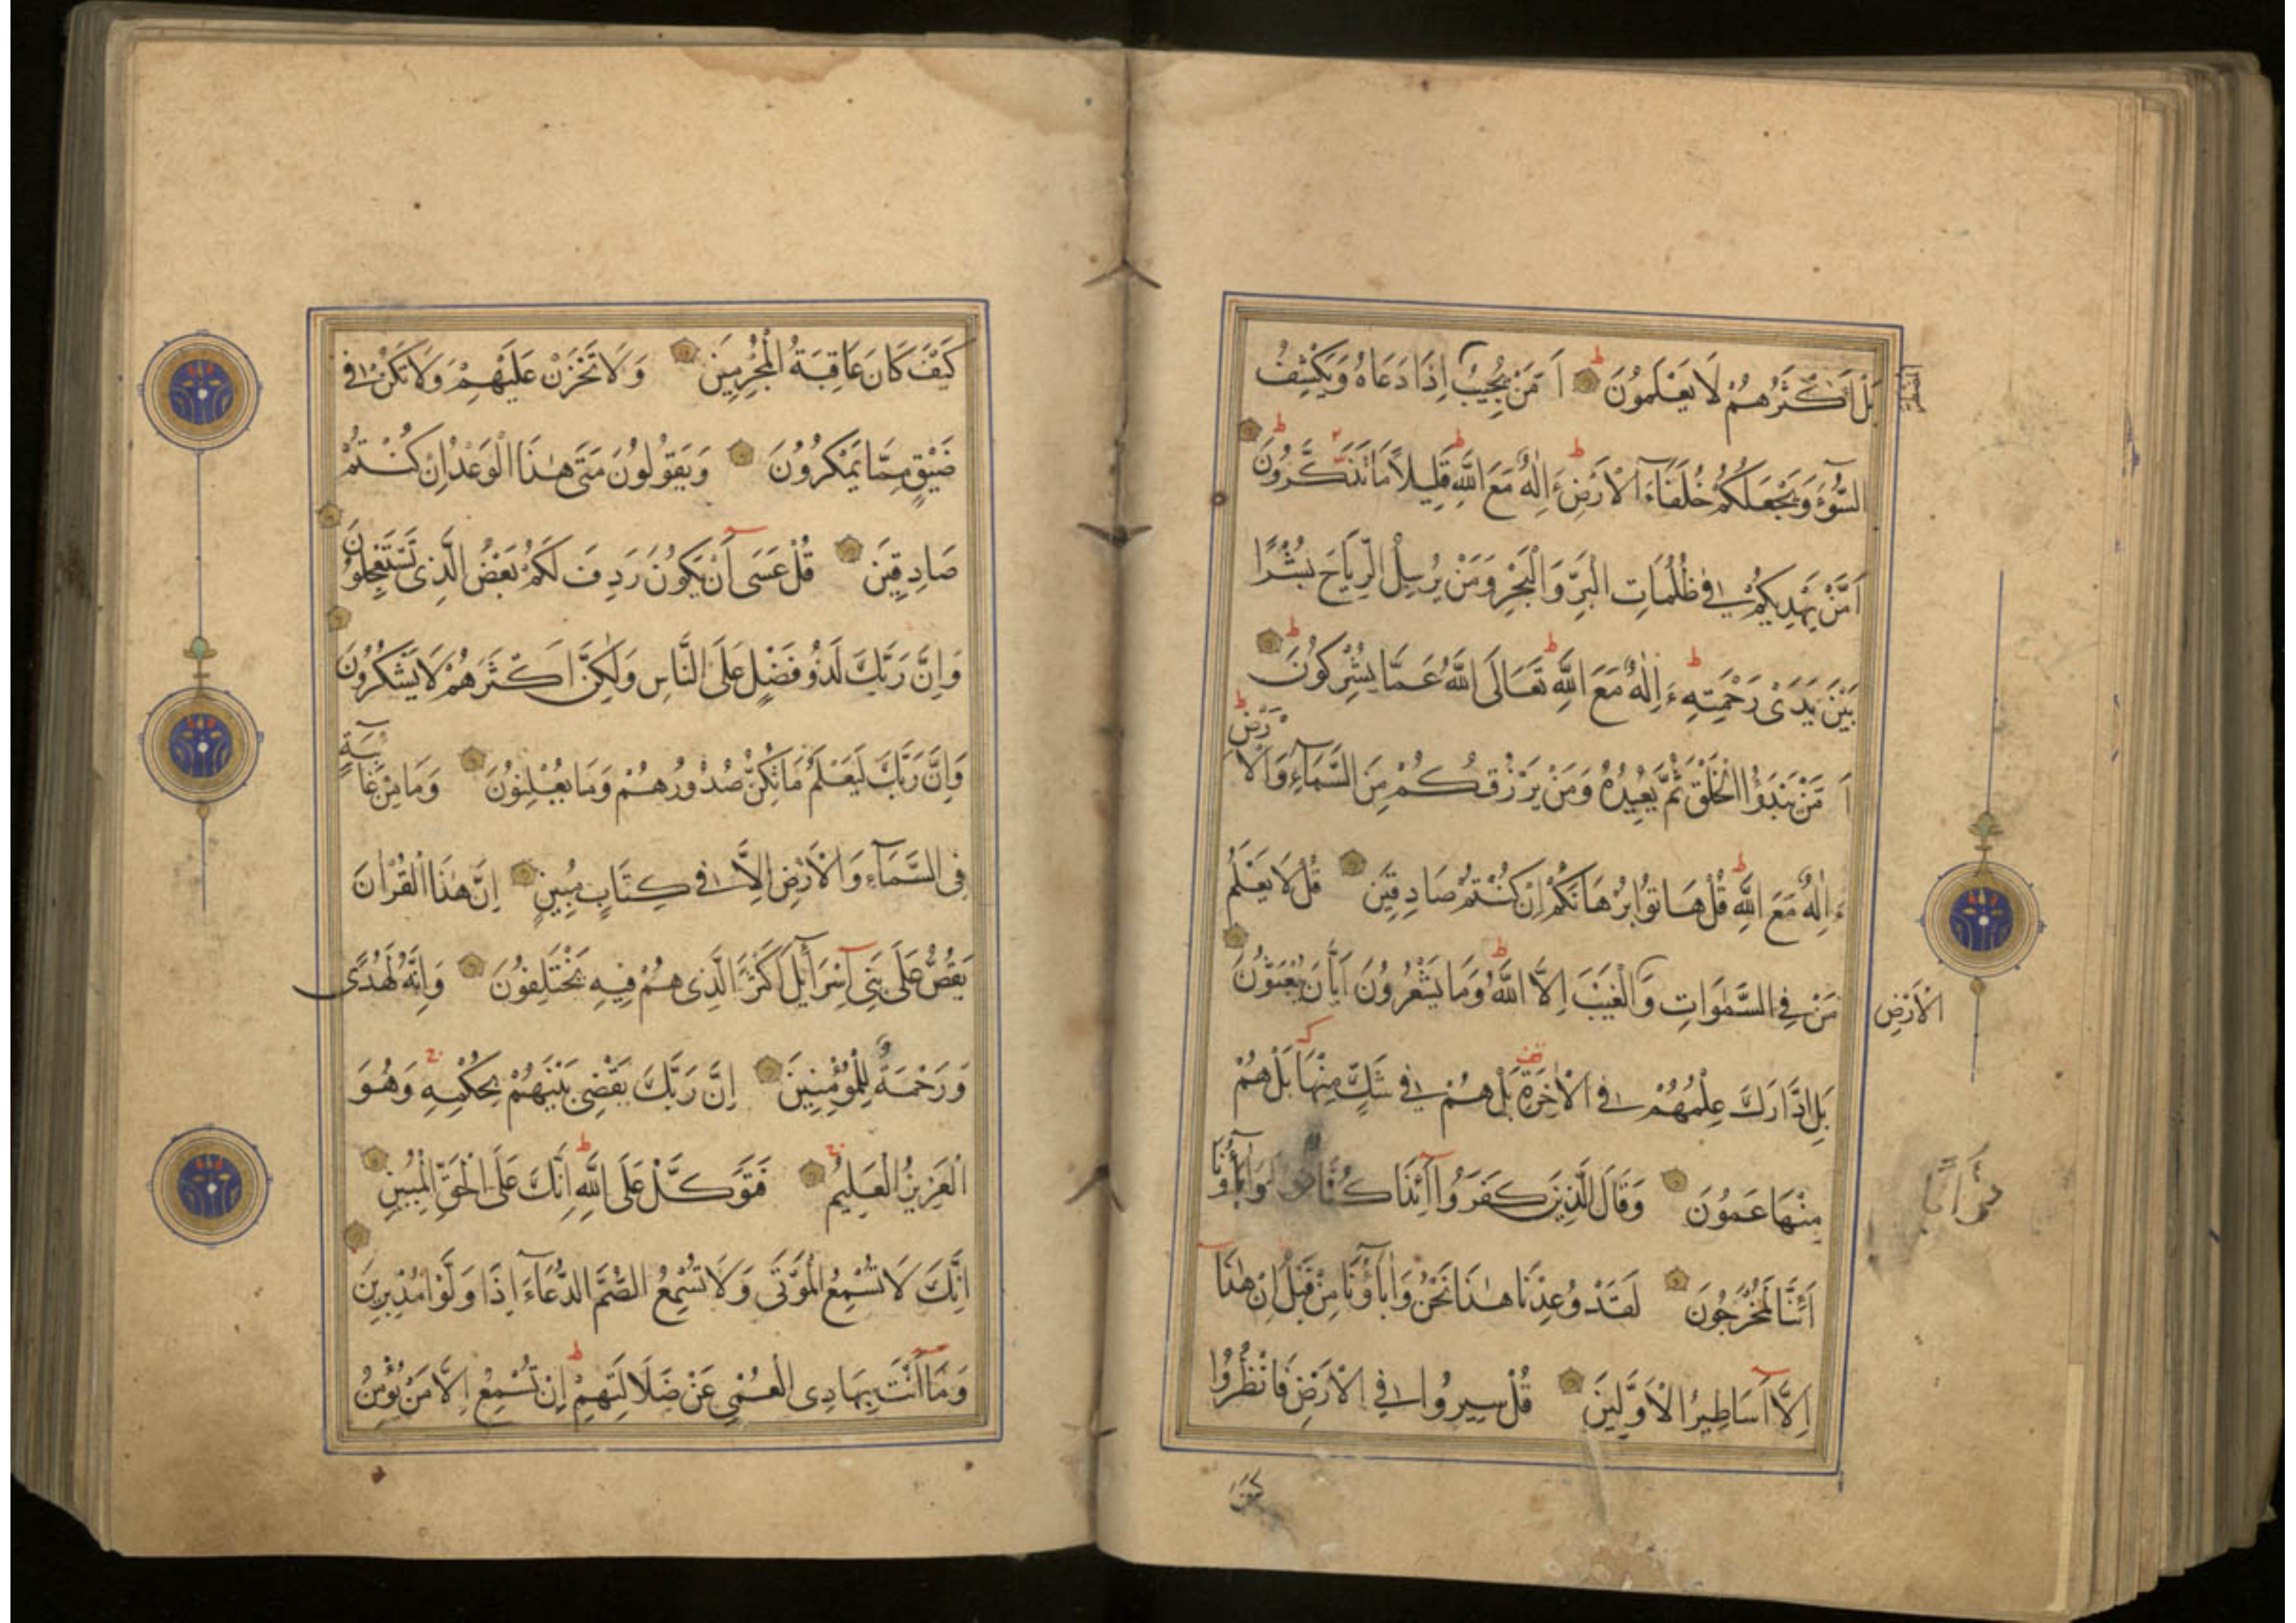 بَلْ اَكْثَرُهُمْ لَا يَعْلَمُونَ اَ مَّنْ يُجِيبُ اِذَا دَعَاهُ وَيَكْشِفُ
المضطر
السُّوٓءَ وَيَجْعَلُكُمْ خُلَفَآءَ الْاَرْضِ ءَاِلٰهٌ مَعَ اللّٰهِ قَلِيلًا مَا تَذَكَّرُونَ
اَمَّنْ يَهْدِيكُمْ فِي ظُلُمَاتِ الْبَرِّ وَالْبَحْرِ وَمَنْ يُرْسِلُ الرِّيَاحَ بُشْرًا
بَيْنَ يَدَىْ رَحْمَتِهِ ءَاِلٰهٌ مَعَ اللّٰهِ تَعَالَى اللّٰهُ عَمَّا يُشْرِكُونَ
اَ مَّنْ يَبْدَؤُا الْخَلْقَ ثُمَّ يُعِيدُهُ وَمَنْ يَرْزُقُكُمْ مِنَ السَّمَآءِ وَالْاَرْضِ
ءَاِلٰهٌ مَعَ اللّٰهِ قُلْ هَاتُوا بُرْهَانَكُمْ اِنْ كُنْتُمْ صَادِقِينَ قُلْ لَا يَعْلَمُ
مَنْ فِي السَّمٰوَاتِ وَالْغَيْبَ اِلَّا اللّٰهُ وَمَا يَشْعُرُونَ اَيَّانَ يُبْعَثُونَ
الْاَرْضِ
بَلِ ادَّارَكَ عِلْمُهُمْ فِي الْاٰخِرَةِ بَلْ هُمْ فِي شَكٍّ مِنْهَا بَلْ هُمْ
مِنْهَا عَمُونَ وَقَالَ الَّذِينَ كَفَرُوا آئِذَا كُنَّا وَاٰبَآؤُنَا
تُرَابًا
اَئِنَّا لَمُخْرَجُونَ لَقَدْ وُعِدْنَا هٰذَا نَحْنُ وَاٰبَآؤُنَا مِنْ قَبْلُ اِنْ هٰذَآ
اِلَّا اَسَاطِيرُ الْاَوَّلِينَ قُلْ سِيرُوا فِي الْاَرْضِ فَانْظُرُوا
كيف
كَيْفَ كَانَ عَاقِبَةُ الْمُجْرِمِينَ وَلَا تَحْزَنْ عَلَيْهِمْ وَلَا تَكُنْ فِي
ضَيْقٍ مِمَّا يَمْكُرُونَ وَيَقُولُونَ مَتَى هٰذَا الْوَعْدُ اِنْ كُنْتُمْ
صَادِقِينَ قُلْ عَسَى اَنْ يَكُونَ رَدِفَ لَكُمْ بَعْضُ الَّذِى تَسْتَعْجِلُونَ
وَاِنَّ رَبَّكَ لَذُو فَضْلٍ عَلَى النَّاسِ وَلٰكِنَّ اَكْثَرَهُمْ لَا يَشْكُرُونَ
وَاِنَّ رَبَّكَ لَيَعْلَمُ مَا تُكِنُّ صُدُورُهُمْ وَمَا يُعْلِنُونَ وَمَا مِنْ غَائِبَةٍ
فِى السَّمَآءِ وَالْاَرْضِ اِلَّا فِي كِتَابٍ مُبِينٍ اِنَّ هٰذَا الْقُرْاٰنَ
يَقُصُّ عَلَى بَنِى اِسْرَآئِلَ اَكْثَرَ الَّذِى هُمْ فِيهِ يَخْتَلِفُونَ وَاِنَّهُ لَهُدًى
وَرَحْمَةٌ لِلْمُؤْمِنِينَ اِنَّ رَبَّكَ يَقْضِى بَيْنَهُمْ بِحُكْمِهِ وَهُوَ
الْعَزِيزُ الْعَلِيمُ فَتَوَكَّلْ عَلَى اللّٰهِ اِنَّكَ عَلَى الْحَقِّ الْمُبِينِ
اِنَّكَ لَا تُسْمِعُ الْمَوْتَى وَلَا تُسْمِعُ الصُّمَّ الدُّعَآءَ اِذَا وَلَّوْا مُدْبِرِينَ
وَمَآ اَنْتَ بِهَادِى الْعُمْيِ عَنْ ضَلَالَتِهِمْ اِنْ تُسْمِعُ اِلَّا مَنْ يُؤْمِنُ